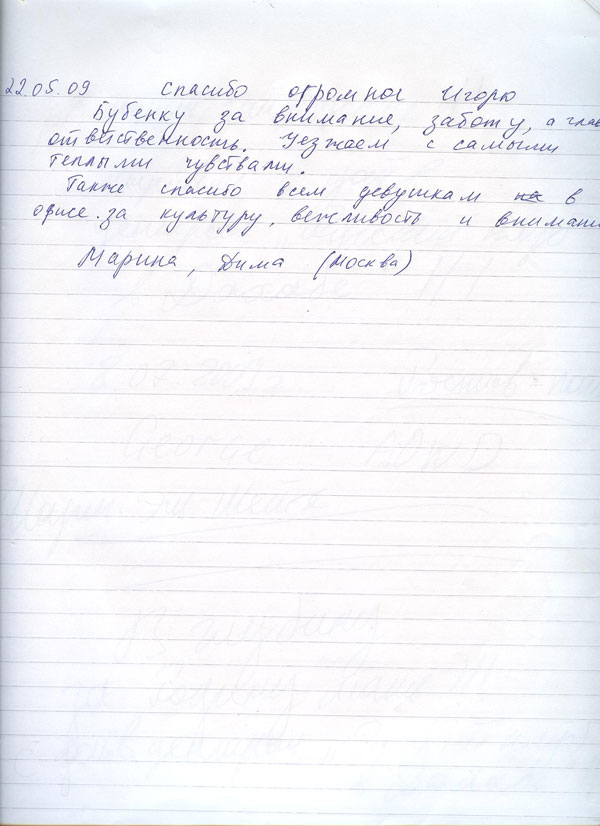 22.05.09 Спасибо огромное Игорю
Бубенку за внимание, заботу, а глав
ответственность. Уезжаем с самыми
теплыми чувствами.
Также спасибо всем девушкам в
офисе за культуру, вежливость и внимани
Марина, Дима (Москва)